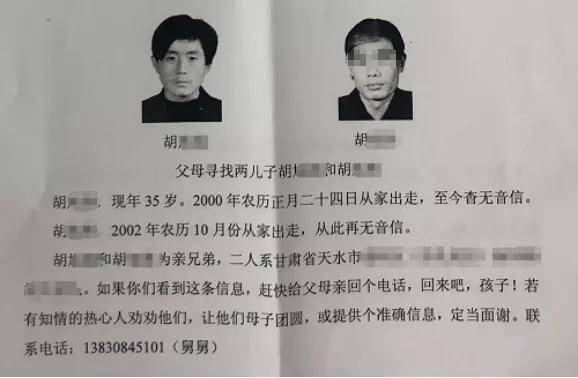 胡
胡
父母寻找两儿子胡 和胡
胡 现年35岁。2000年农历正月二十四日从家出走，至今杳无音信。
胡 2002年农历10月份从家出走，从此再无音信。
胡 和胡 为亲兄弟，二人系甘肃省天水市
。如果你们看到这条信息，赶快给父母亲回个电话，回来吧，孩子！若
有知情的热心人劝劝他们，让他们母子团圆，或提供个准确信息，定当面谢。联
系电话：13830845101（舅舅）